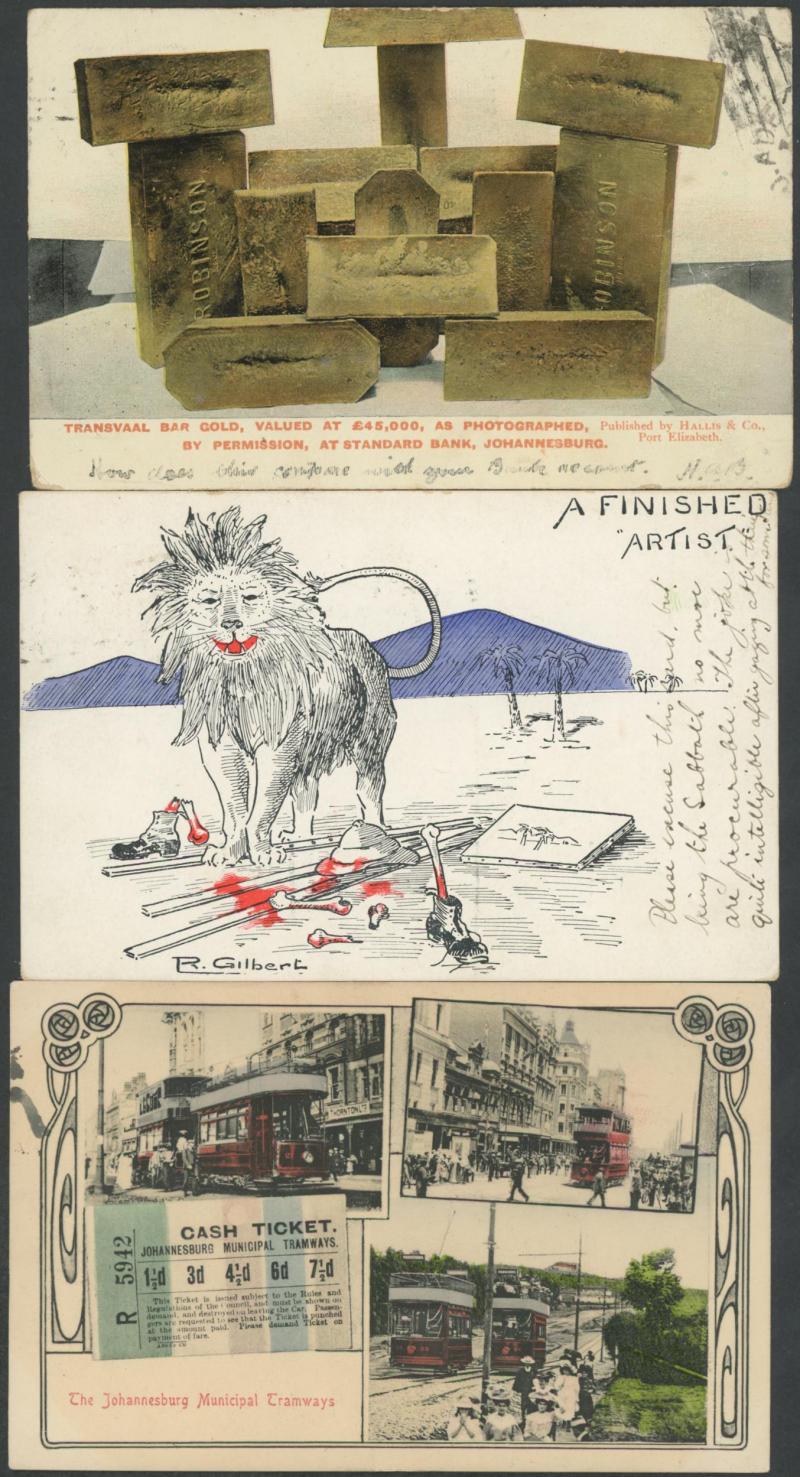 ROBINSON
ROBINSON
TRANSVAAL BAR GOLD, VALUED AT £45,000, AS PHOTOGRAPHED,
BY PERMISSION, AT STANDARD BANK, JOHANNESBURG.
Published by HALLIS & Co.,
Port Elizabeth.
How does this compare with your Bank account. H.a.B.
A FINISHED
"ARTIST"
Please excuse this card, but
being the Sabbath no more
are procurable. The joke is
quite intelligible after gazing at the thing
for some
R. Gilbert
THORNTON LTD
R 5942
CASH TICKET.
JOHANNESBURG MUNICIPAL TRAMWAYS.
1½d 3d 4½d 6d 7½d
This Ticket is issued subject to the Rules and
Regulations of the Council, and must be shown on
demand, and destroyed on leaving the Car. Passen-
gers are requested to see that the Ticket is punched
at the amount paid. Please demand Ticket on
payment of fare.
The Johannesburg Municipal Tramways